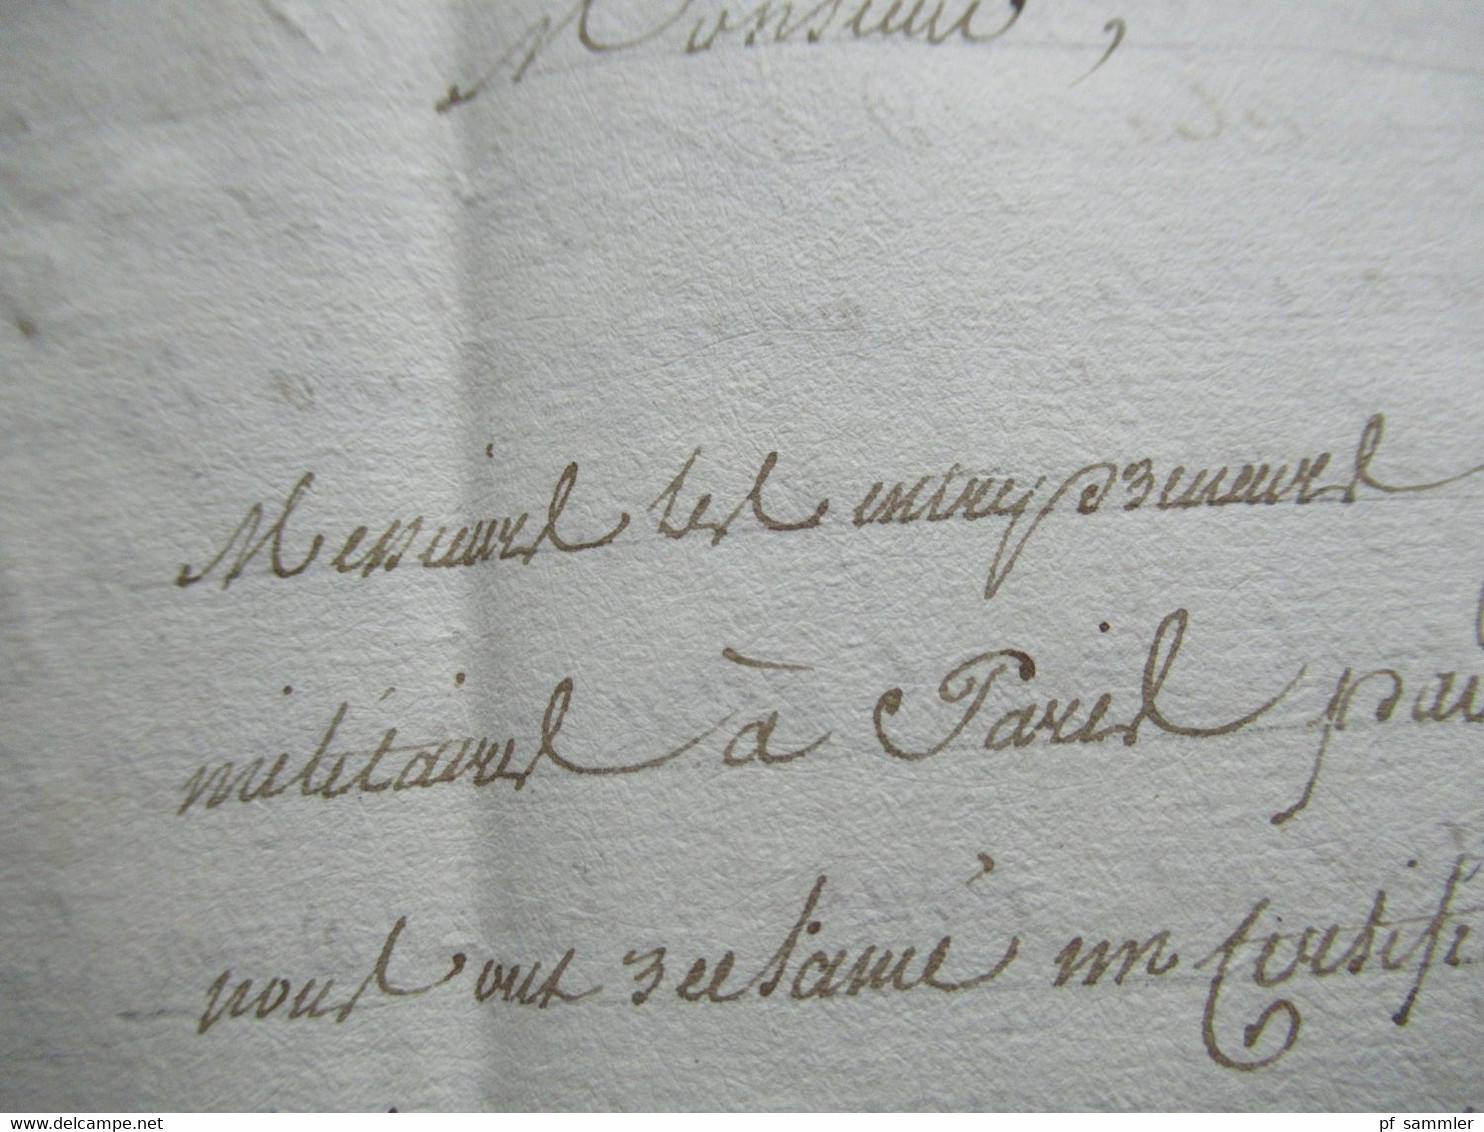 Monsieur,
Messieurs les entrepreneurs
militaires à Paris par
nous ont reclamé un Certifi
delcampe.net
pf_sammler